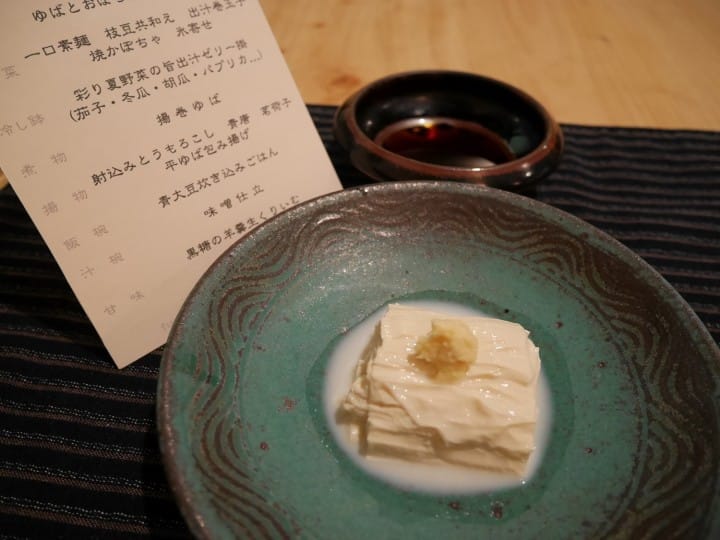 ゆばとおぼろ
一口素麺 枝豆共和え 出汁巻玉子
菜 焼かぼちゃ 氷寄せ
彩り夏野菜の旨出汁ゼリー掛
冷し鉢 (茄子・冬瓜・胡瓜・パプリカ...)
煮物 揚巻ゆば
射込みとうもろこし 青唐 茗荷子
揚物 平ゆば包み揚げ
飯碗 青大豆炊き込みごはん
汁碗 味噌仕立
甘味 黒糖の羊羹生くりぃむ